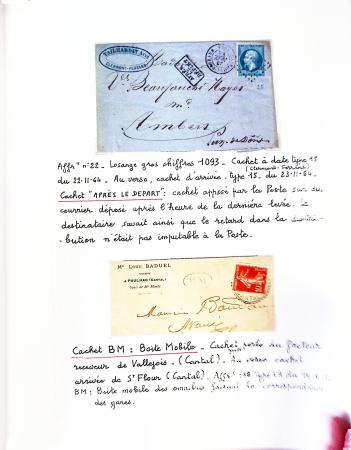 TAILHARDAT AÎNÉ
CLERMONT-FERRAND
APRÈS
LE DÉPART
Madame
Vve Beaujeu Hayer
md
Ambert
Puy-de-Dôme
Affrt n°22 - Losange gros chiffres 1093 - Cachet à date type 15
(Clermont-Ferrand)
du 22-11-64 - Au verso, cachet d'arrivée, type 15, du 23-11-64.
Cachet "APRÈS LE DEPART": cachet apposé par la Poste sur du
courrier déposé après l'heure de la dernière levée. Le
destinataire savait ainsi que le retard dans la distri-
bution n'était pas imputable à la Poste.
Me LOUIS BADUEL
A PAULHAC (CANTAL)
BM
Monsieur
Maire
Cachet BM: Boite Mobile - Cachet du facteur
receveur de Vallejois - (Cantal). Au verso cachet
arrivée de St Flour (Cantal). Affrt
BM: Boite mobile des omnibus faisant la correspondance
des gares.